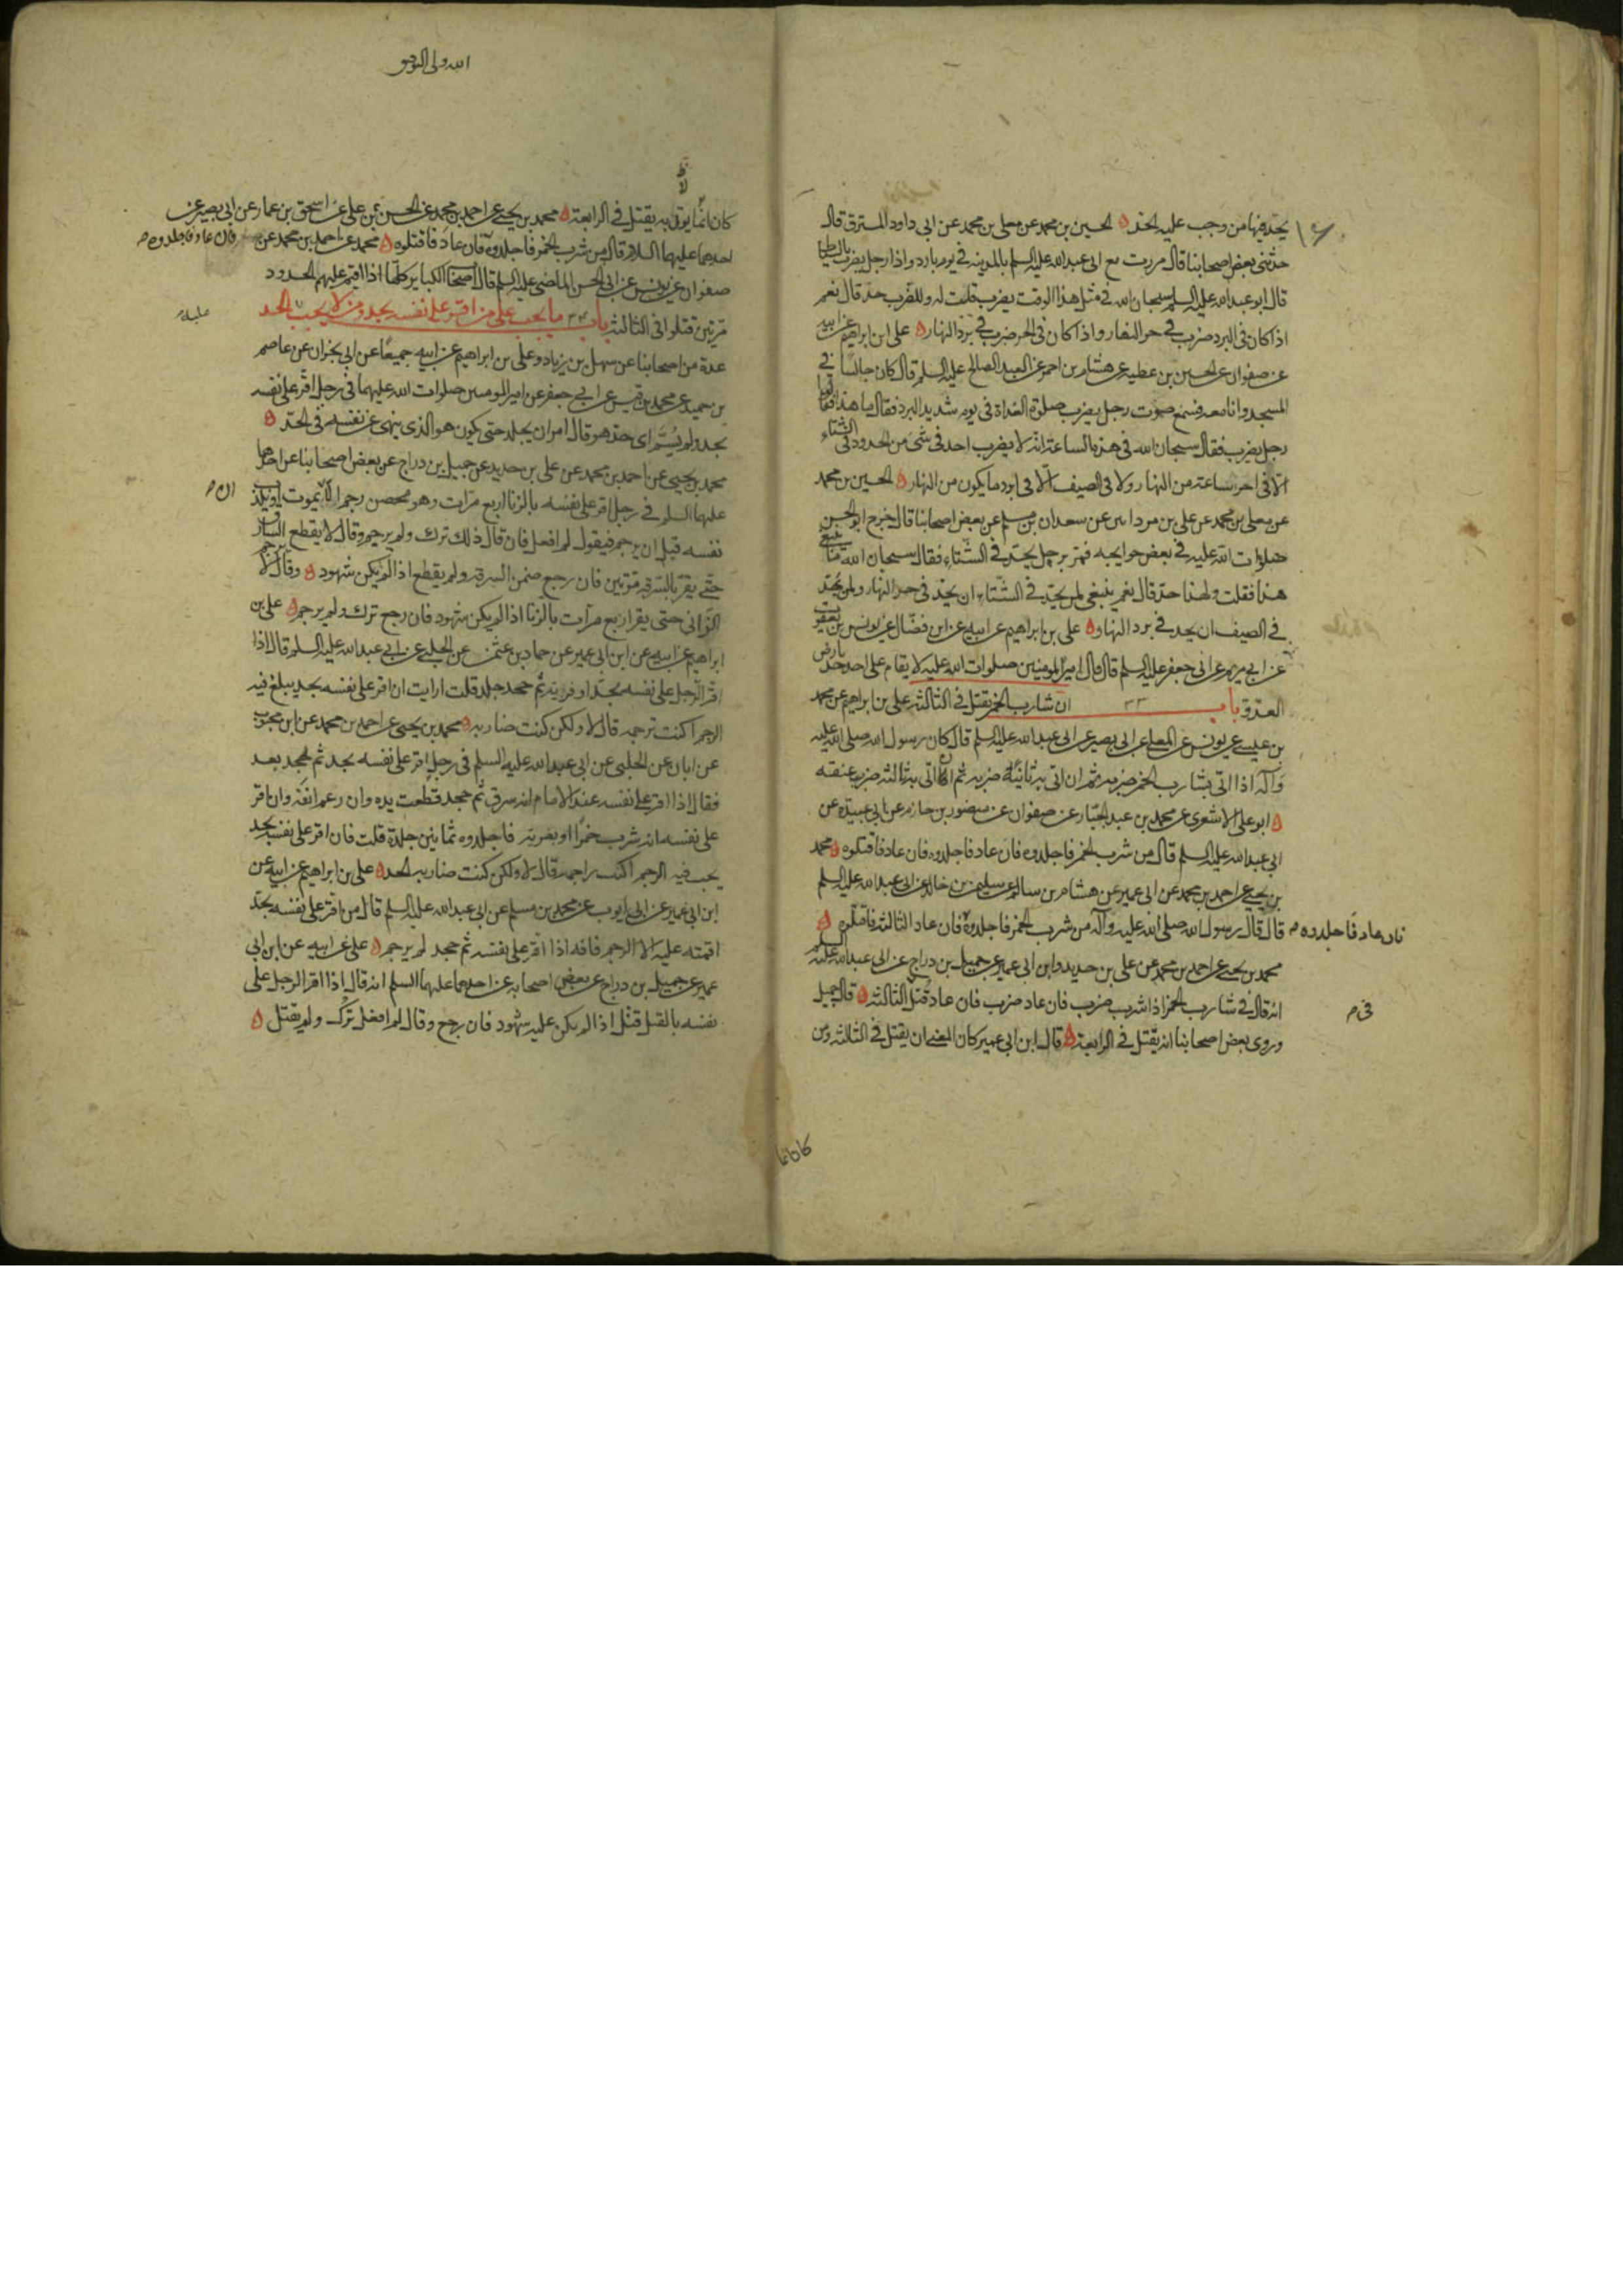 يحد فيها من وجب عليه الحد الحسين بن محمد عن معلى بن محمد عن ابى داود المسترق قال
حدثنى بعض اصحابنا قال مررت مع ابى عبدالله عليه السلم بالمدينه فى يوم بارد واذا رجل يضرب بالسياط
قال ابو عبدالله عليه السلم سبحان الله فى مثل هذا الوقت يضرب قلت له وللضرب حد قال نعم
اذا كان فى البرد ضرب فى حر النهار واذا كان فى الحر ضرب فى برد النهار على ابن ابراهيم عن ابيه
عن صفوان عن الحسين بن عطيه عن هشام بن احمر عن العبد الصالح عليه السلم قال كان جالسا فى
المسجد وانا معه فسمع صوت رجل يضرب صلوة الغداة فى يوم شديد البرد فقال ما هذا فقالوا
رجل يضرب فقال سبحان الله فى هذه الساعة انه لا يضرب احد فى شئ من الحدود فى الشتاء
الا فى احر ساعة من النهار ولا فى الصيف الا فى ابرد ما يكون من النهار الحسين بن محمد
عن معلى بن محمد عن على بن مرداس عن سعدان بن مسلم عن بعض اصحابنا قال خرج ابو الحسن
صلوات الله عليه فى بعض حوايجه فمر برجل يحد فى الشتاء فقال سبحان الله ما ينبغى
هذا فقلت ولهذا حد قال نعم ينبغى لمن يحد فى الشتاء ان يحد فى حر النهار ولمن يحد
فى الصيف ان يحد فى برد النهار على بن ابراهيم عن ابيه عن ابن فضال عن يونس بن يعقوب
عن ابى مريم عن ابى جعفر عليه السلم قال قال امير المومنين صلوات الله عليه لا يقام على احد حد بارض
العدو باب ٣٣ ان شارب الخمر يقتل فى الثالثه على بن ابراهيم عن محمد
بن عيسى عن يونس عن المعلى عن ابى بصير عن ابى عبدالله عليه السلم قال كان رسول الله صلى الله عليه
وآله اذا اتى بشارب الخمر ضربه ثم ان اتى به ثانية ضربه ثم اذا اتى به ثالثه ضرب عنقه
ابو على الاشعرى عن محمد بن عبد الجبار عن صفوان عن منصور بن حازم عن ابى عبيدة عن
ابى عبدالله عليه السلم قال من شرب الخمر فاجلدوه فان عاد فاجلدوه فان عاد فاقتلوه محمد
بن يحيى عن احمد بن محمد عن ابى عمير عن هشام بن سالم عن سليمن بن خالد عن ابى عبدالله عليه السلم
قال قال رسول الله صلى الله عليه وآله من شرب الخمر فاجلدوه فان عاد الثالثه فاقتلوه
فان عاد فاجلدوه م
محمد بن يحيى عن احمد بن محمد عن على بن حديد وابن ابى عمير عن جميل بن دراج عن ابى عبدالله عليه السلم
انه قال فى شارب الخمر اذا شرب ضرب فان عاد ضرب فان عاد قتل الثالثه قال جميل
فى م
وروى بعض اصحابنا انه يقتل فى الرابعة قال ابن ابى عمير كان المعنى ان يقتل فى الثالثه ومن
كان انما
الله ولى التوفيق
كان انما يوتى به يقتل فى الرابعة محمد بن يحيى عن احمد بن محمد عن الحسن بن على عن اسحق بن عمار عن ابى بصير عن
احدهما عليهما السلام قال من شرب الخمر فاجلدوه فان عاد فاقتلوه محمد عن احمد بن محمد عن
فان عاد فاجلدوه م
صفوان عن يونس عن ابى الحسن الماضى عليه السلم قال اصحاب الكباير كلها اذا اقيم عليهم الحدود
مرتين قتلوا فى الثالثه باب ٣٤ ما يجب على من اقر على نفسه بحد ومن لا يجب الحد
عليه م
عدة من اصحابنا عن سهل بن زياد وعلى بن ابراهيم عن ابيه جميعا عن ابى نجران عن عاصم
بن حميد عن محمد بن قيس عن ابى جعفر عن امير المومنين صلوات الله عليهما فى رجل اقر على نفسه
بحد ولم يسم اى حد هو قال امر ان يجلد حتى يكون هو الذى ينهى عن نفسه فى الحد
محمد بن يحيى عن احمد بن محمد عن على بن حديد عن جميل بن دراج عن بعض اصحابنا عن احدهما
عليهما السلم فى رجل اقر على نفسه بالزنا اربع مرات وهو محصن رجم الى ان يموت او يكذب
ان م
نفسه قبل ان يرجم فيقول لم افعل فان قال ذلك ترك ولم يرجم وقال لا يقطع السارق
حتى يقر بالسرقه مرتين فان رجع ضمن السرقه ولم يقطع اذا لم يكن شهود وقال لا يرجم
الزانى حتى يقر اربع مرات بالزنا اذا لم يكن شهود فان رجع ترك ولم يرجم على بن
ابراهيم عن ابيه عن ابن ابى عمير عن حماد بن عثمن عن الحلبى عن ابى عبدالله عليه السلم قال اذا
اقر الرجل على نفسه بحد او فرية ثم جحد جلد قلت ارايت ان اقر على نفسه بحد يبلغ فيه
الرجم اكنت ترجمه قال لا ولكن كنت ضاربه محمد بن يحيى عن احمد بن محمد عن ابن محبوب
عن ابان عن الحلبى عن ابى عبدالله عليه السلم فى رجل اقر على نفسه بحد ثم جحد بعد
فقال اذا اقر على نفسه عند الامام انه سرق ثم جحد قطعت يده وان رغم انفه وان اقر
على نفسه انه شرب خمرا او بفرية فاجلدوه ثمانين جلدة قلت فان اقر على نفسه بحد
يجب فيه الرجم اكنت راجمه قال لا ولكن كنت ضاربه الحد على بن ابراهيم عن ابيه عن
ابن ابى عمير عن ابى ايوب عن محمد بن مسلم عن ابى عبدالله عليه السلم قال من اقر على نفسه بحد
اقمته عليه الا الرجم فانه اذا اقر على نفسه ثم جحد لم يرجم على عن ابيه عن ابن ابى
عمير عن جميل بن دراج عن بعض اصحابه عن احدهما عليهما السلم انه قال اذا اقر الرجل على
نفسه بالقتل قتل اذا لم يكن عليه شهود فان رجع وقال لم افعل ترك ولم يقتل